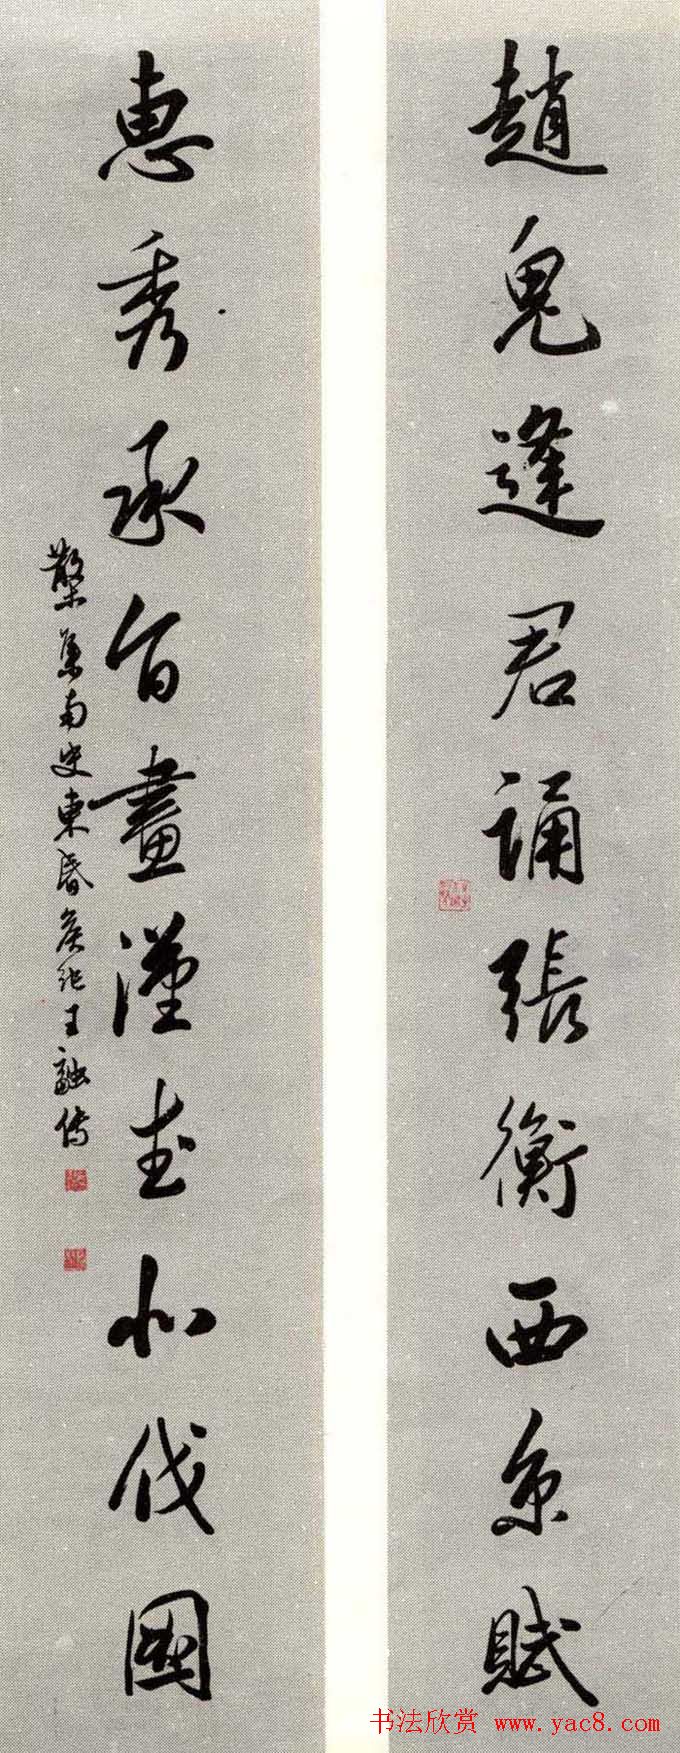 趙鬼逢君誦張衡西京賦
惠秀承旨畫漢武北伐圖
集南史東昏侯紀王融傳
书法欣赏 www.yac8.com